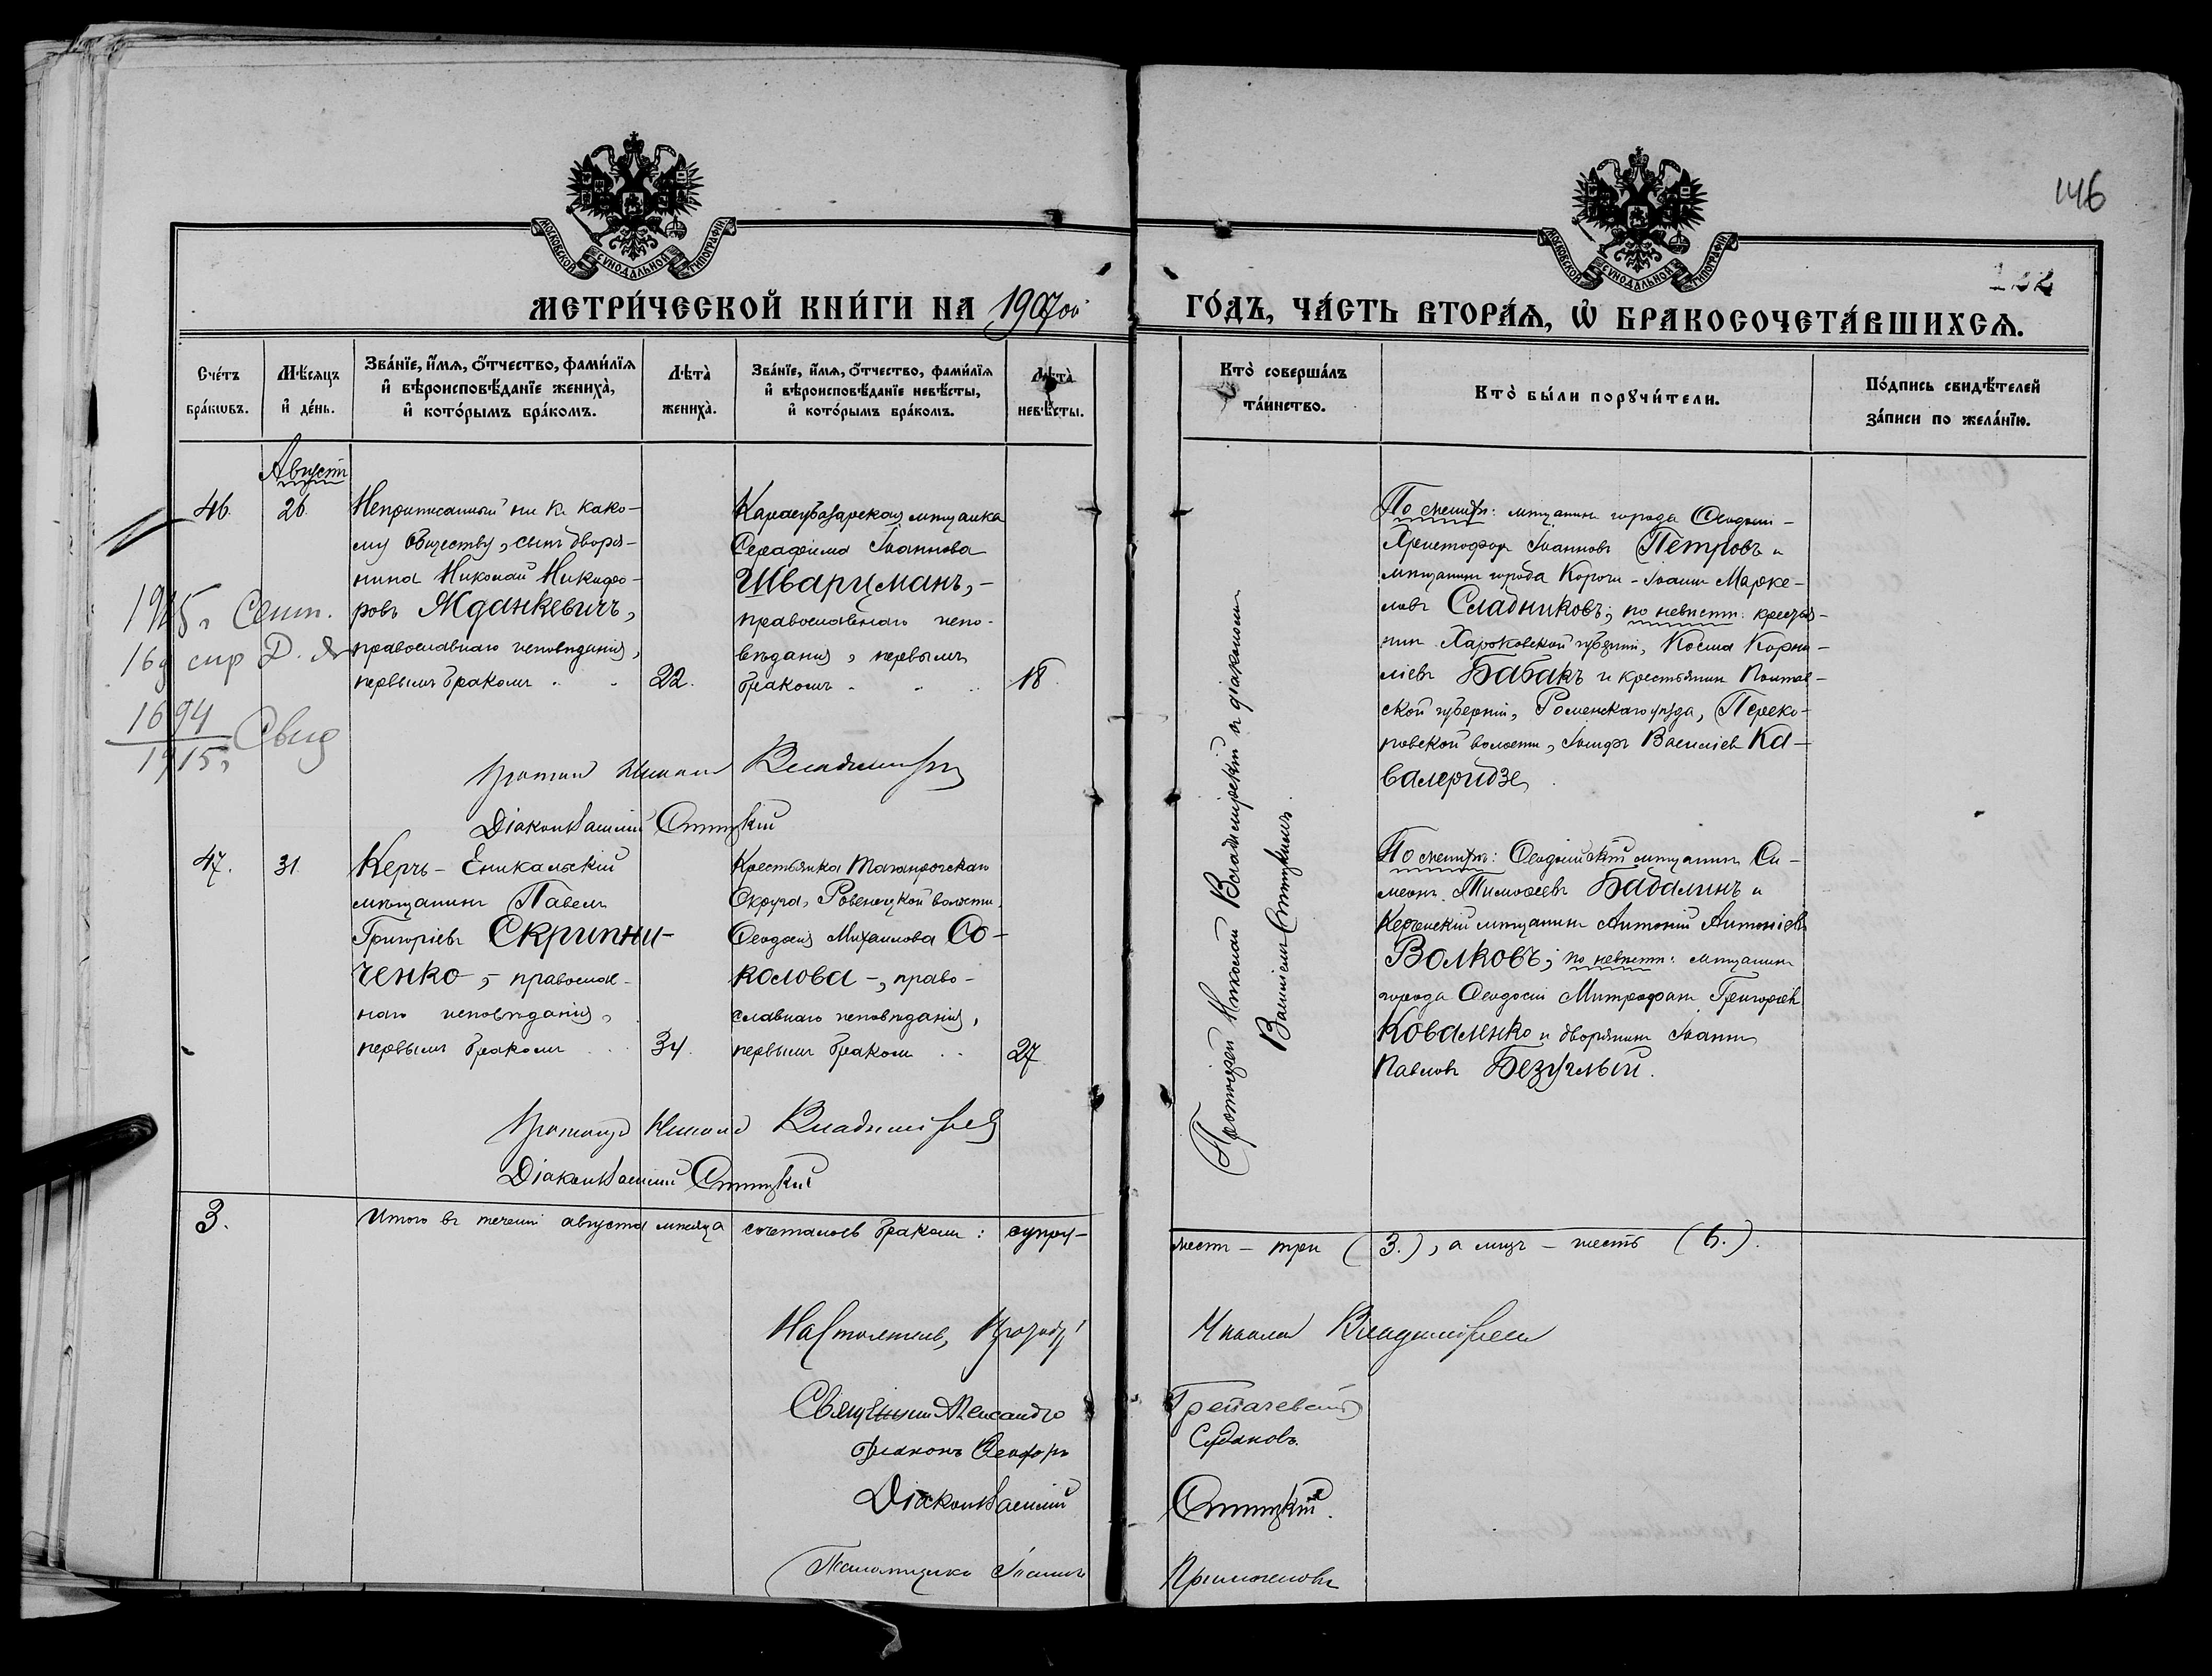 146
МОСКОВСКОЙ СѴНОДАЛЬНОЙ ТИПОГРАФІИ
МОСКОВСКОЙ СѴНОДАЛЬНОЙ ТИПОГРАФІИ
МЕТРИ́ЧЕСКОЙ КНИ́ГИ НА 1907ой ГО́ДЪ, ЧА́СТЬ ВТОРА́Ѧ, Ѽ БРАКОСОЧЕТА́ВШИХСѦ.
Сче́тъ бра́кѡвъ.
Мѣ́сяцъ и҆ де́нь.
Зва́нїе, и҆́мѧ, ѻ҆́тчество, фами́лїѧ
и҆ вѣроисповѣ́данїе жениха̀,
и҆ кото́рымъ бра́комъ.
Лѣта̀ жениха̀.
Зва́нїе, и҆́мѧ, ѻ҆́тчество, фами́лїѧ
и҆ вѣроисповѣ́данїе невѣ́сты,
и҆ кото́рымъ бра́комъ.
Лѣта̀ невѣ́сты.
Кто̀ соверша́лъ та́инство.
Кто̀ бы́ли порꙋчи́тели.
По́дпись свидѣ́телей
за́писи по жела́нїю.
Августъ
46.
26.
Неприписанный ни къ како-
му обществу, сынъ дворя-
нина Николай Никифо-
ровъ Жданкевичъ,
православнаго исповѣданія,
первымъ бракомъ
22.
Карасубазарская мѣщанка
Серафима Іоаннова
Шварцманъ, -
православнаго испо-
вѣданія, первымъ
бракомъ
18
1915 г. Сент.
16 д
1694
1915 г. Свид
Протоіерей Николай Владимірскій съ діакономъ
Василіемъ Стицкимъ.
По женихѣ: мѣщанинъ города Ѳеодосіи -
Христофоръ Іоанновъ Петровъ и
мѣщанинъ города Корочи - Іоаннъ Марке-
ловъ Сладниковъ; по невѣстѣ: крестья-
нинъ Харьковской губерніи, Косма Корни-
ліевъ Бабакъ и крестьянинъ Полтав-
ской губерніи, Роменскаго уѣзда, Переко-
повской волости, Іосифъ Василіевъ Ка-
валеридзе
Протоіерей Николай Владимірскій
Діаконъ Василій Стицкій
47.
31.
Керчь - Еникальскій
мѣщанинъ Павелъ
Григоріевъ Скрипни-
ченко, - православ-
наго исповѣданія,
первымъ бракомъ
34.
Крестьянка Таганрогскаго
Округа, Ровенецкой волости,
Ѳеодосія Михаилова Со-
колова -, право-
славнаго исповѣданія,
первымъ бракомъ
27
По женихѣ: Ѳеодосійскій мѣщанинъ Си-
меонъ Тимоѳеевъ Бабалинъ и
Керченскій мѣщанинъ Антоній Антоніевъ
Волковъ; по невѣстѣ: мѣщанинъ
города Ѳеодосіи Митрофанъ Григоріевъ
Коваленко и дворянинъ Іоаннъ
Павловъ Безуглый.
Протоіерей Николай Владимірскій
Діаконъ Василій Стицкій
3.
Итого въ теченіи августа мѣсяца сочеталось бракомъ: супру-
жествъ - три (3.), а лицъ - шесть (6.).
Настоятель, Протоіерей Николай Владимірскій
Священникъ Александръ
Діаконъ Ѳеодоръ Судаковъ.
Діаконъ Василій Стицкій.
Псаломщикъ Іоаннъ